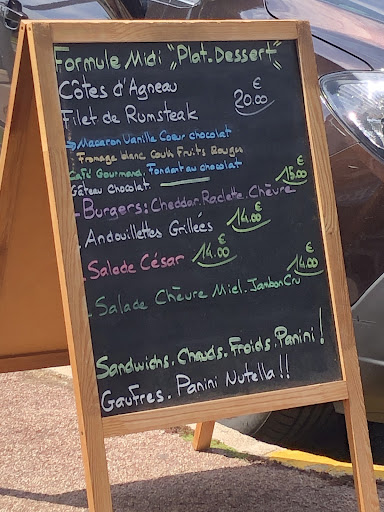 Formule Midi "Plat-Dessert"
Côtes d'Agneau
Filet de Rumsteak 20.00 €
Macaron Vanille Coeur chocolat
Fromage blanc Coulis Fruits Rouges
Café Gourmand Fondant au chocolat
Gâteau chocolat
- Burgers: Cheddar. Raclette. Chèvre 15.00 €
- Andouillettes Grillées 14.00 €
- Salade César 14.00 €
- Salade Chèvre Miel. Jambon Cru 14.00 €
Sandwichs. Chauds. Froids. Panini!
Gaufres. Panini Nutella!!